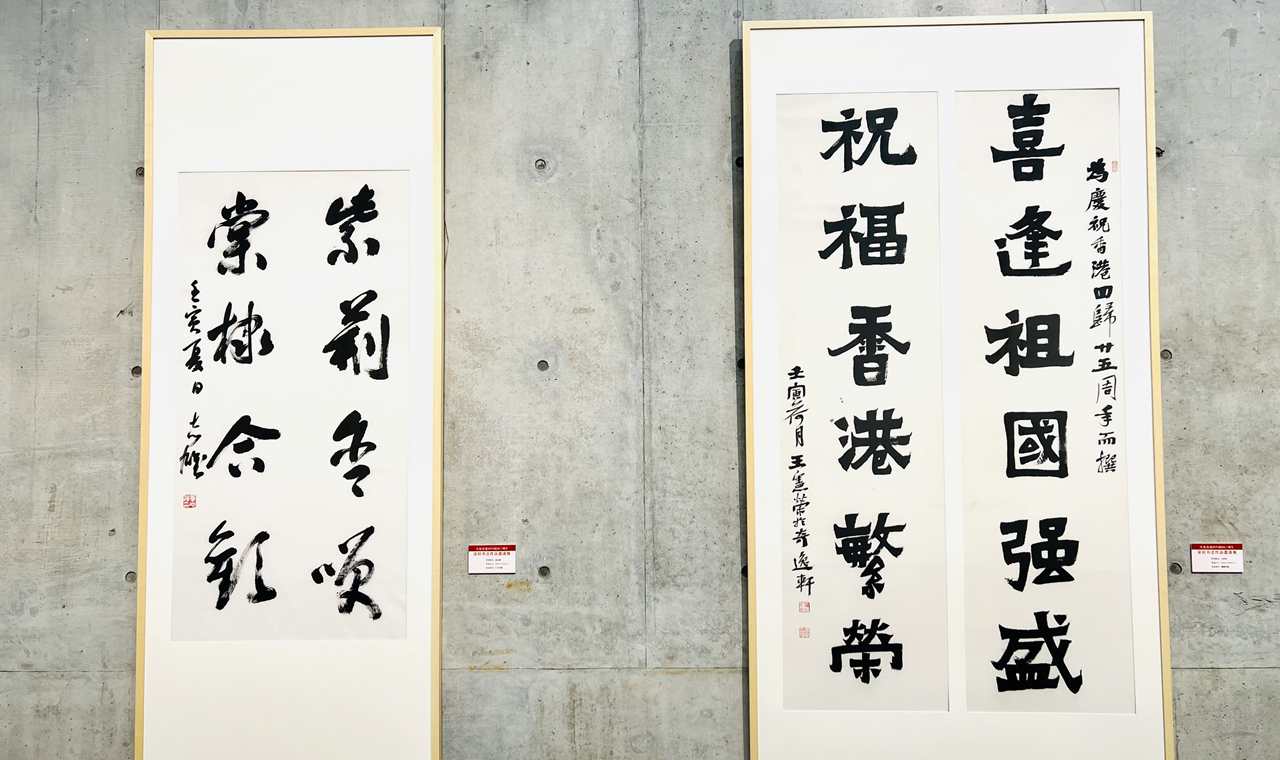 紫荊
棠棣合歡
壬寅夏日 志雄
為慶祝香港回歸廿五周年而撰
喜逢祖國强盛
祝福香港繁榮
壬寅荷月王憲榮於奇逸軒